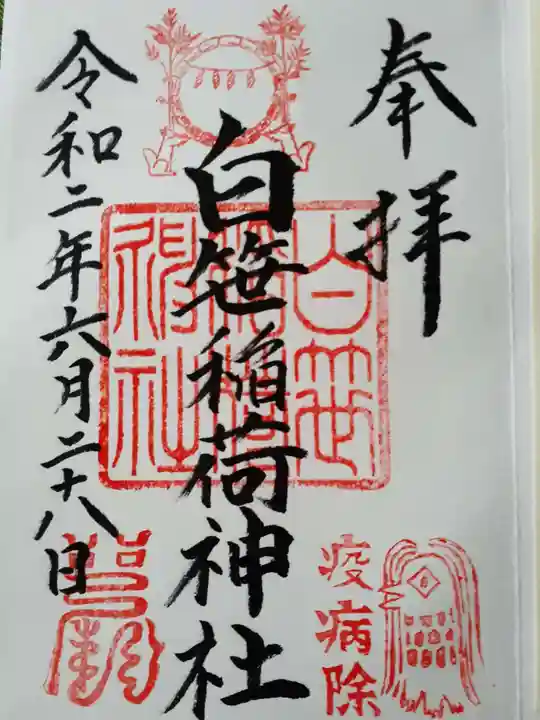 奉拝
白笹稲荷神社
白笹稲荷神社
令和二年六月二十八日
疫病除